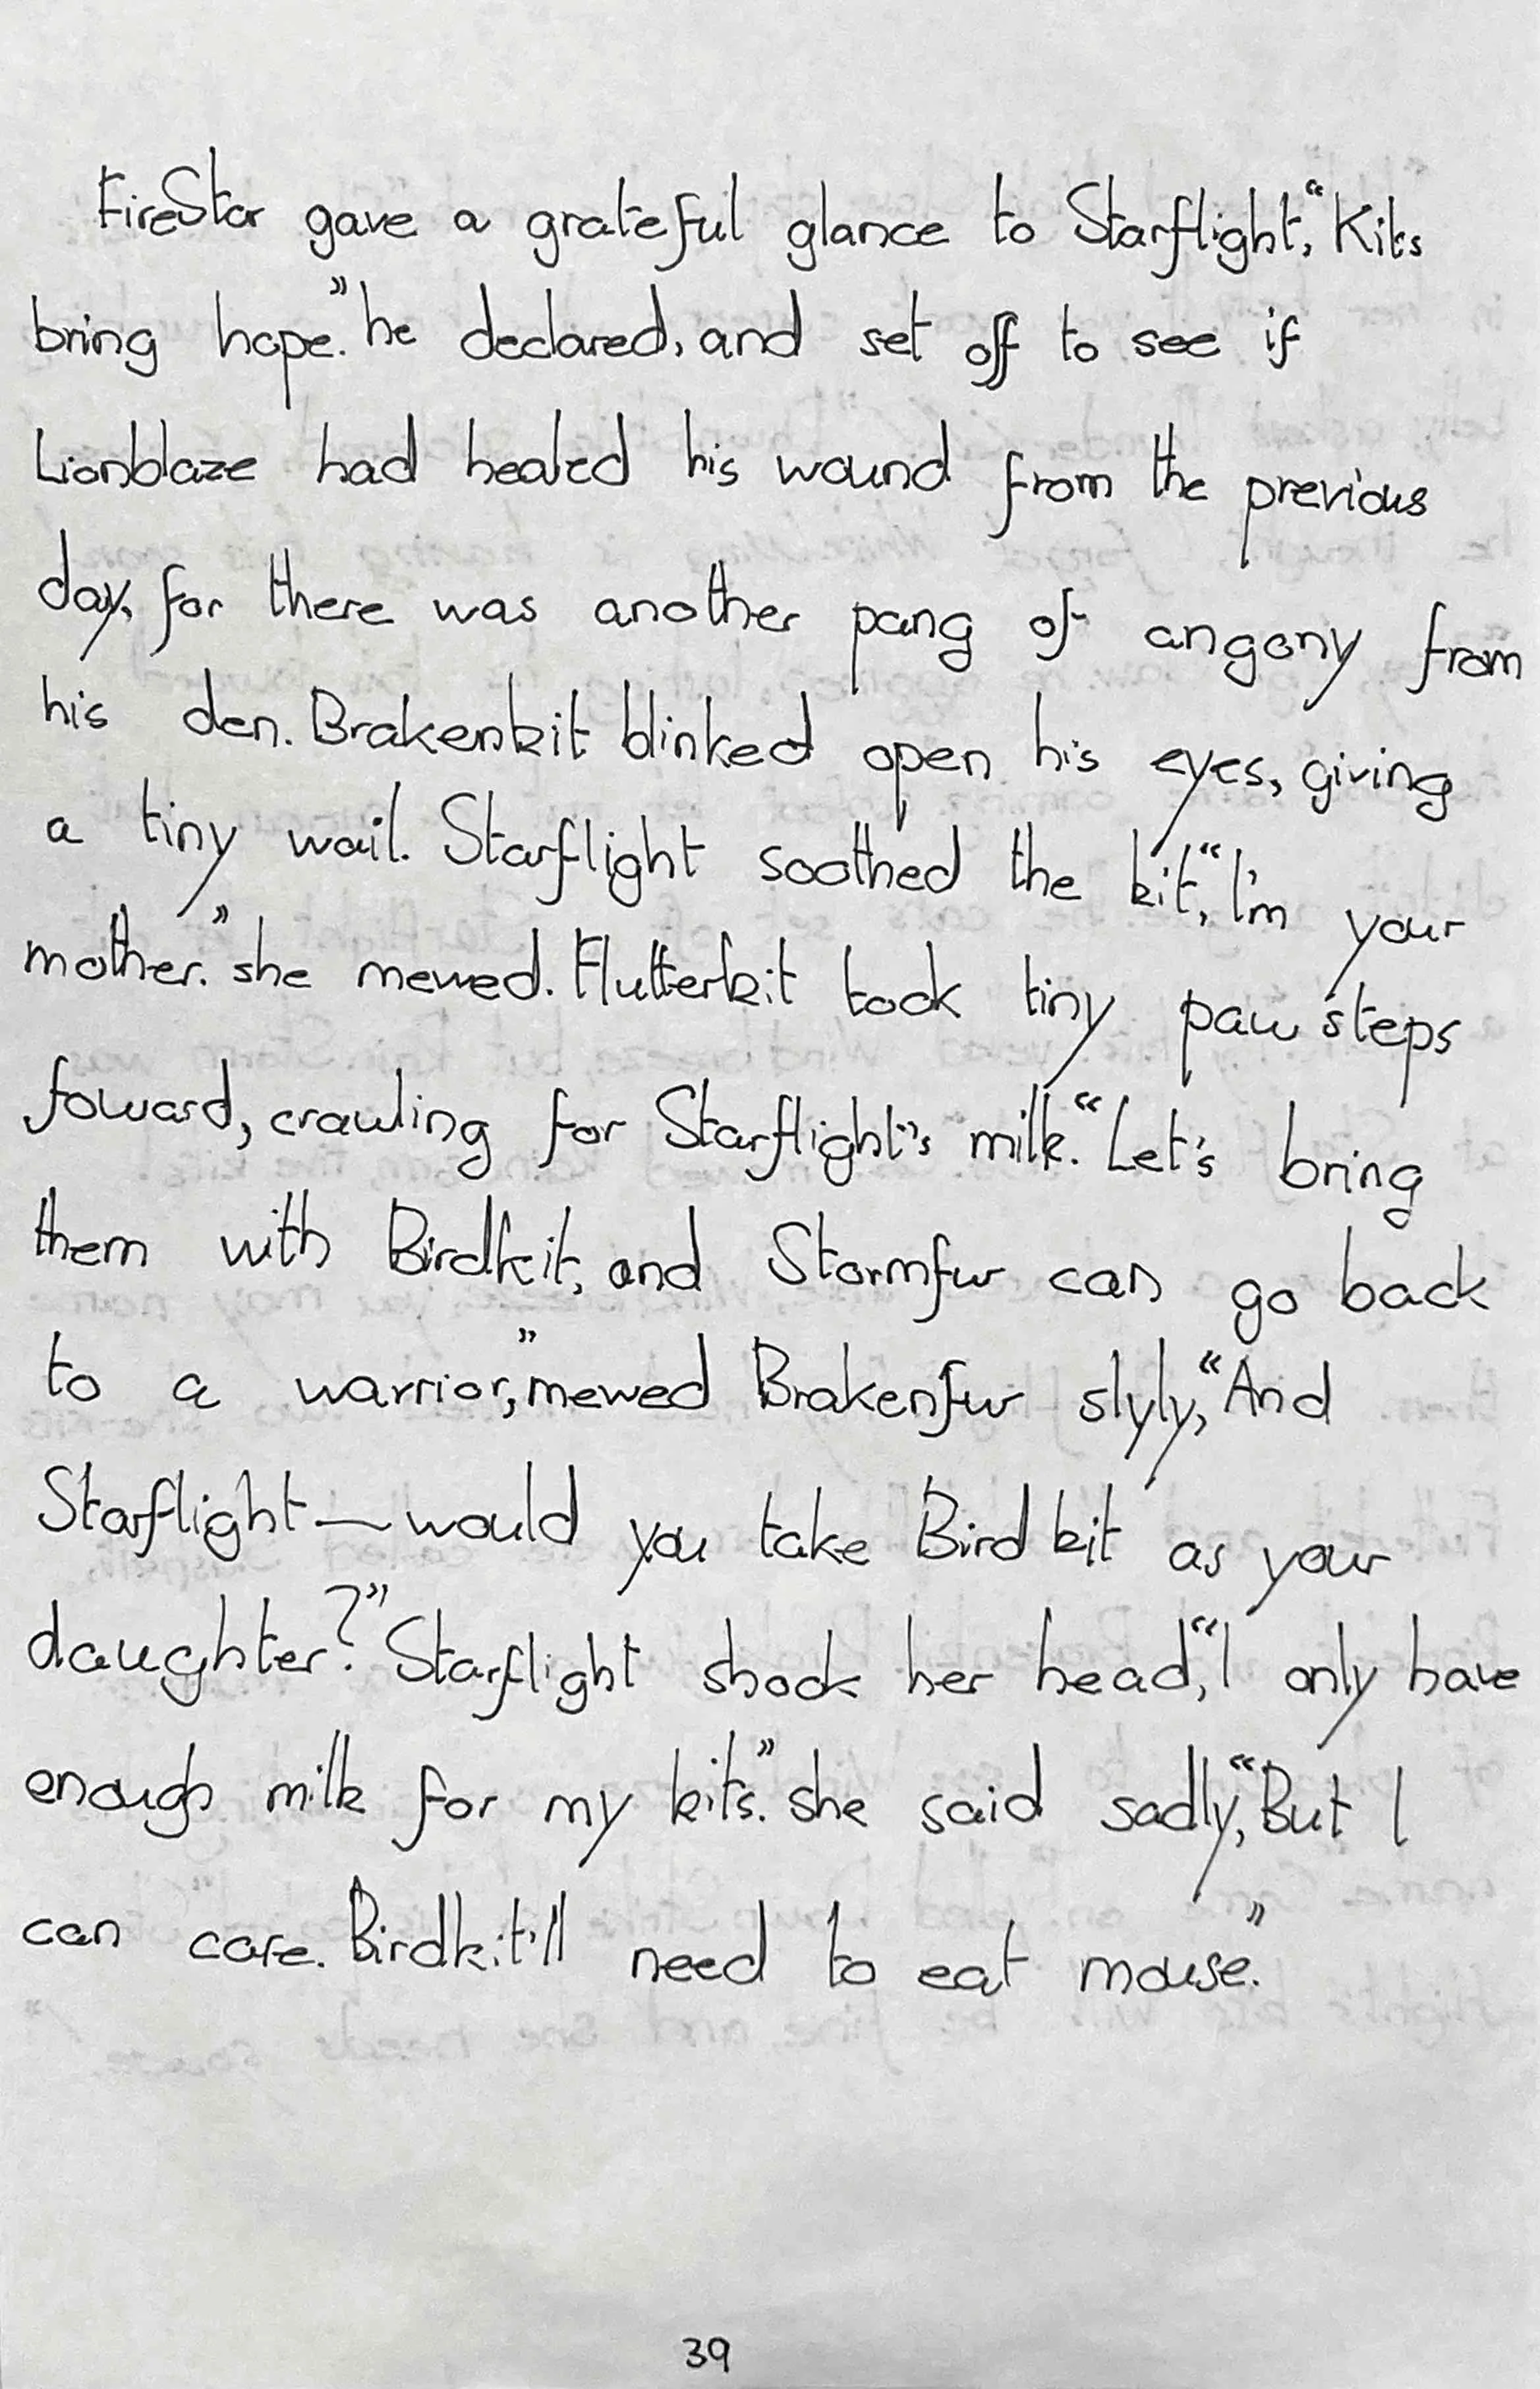 FireStar gave a grateful glance to Starflight, “Kits
bring hope.” he declared, and set off to see if
Lionblaze had healed his wound from the previous
day, for there was another pang of angony from
his den. Brakenkit blinked open his eyes, giving
a tiny wail. Starflight soothed the kit, “I'm your
mother.” she mewed. Flutterkit took tiny paw steps
foward, crawling for Starflight's milk. “Let's bring
them with Birdkit, and Stormfur can go back
to a warrior,” mewed Brakenfur slyly, “And
Starflight — would you take Birdkit as your
daughter?” Starflight shook her head, “I only have
enough milk for my kits.” she said sadly, “But I
can care. Birdkit'll need to eat mouse.”
39